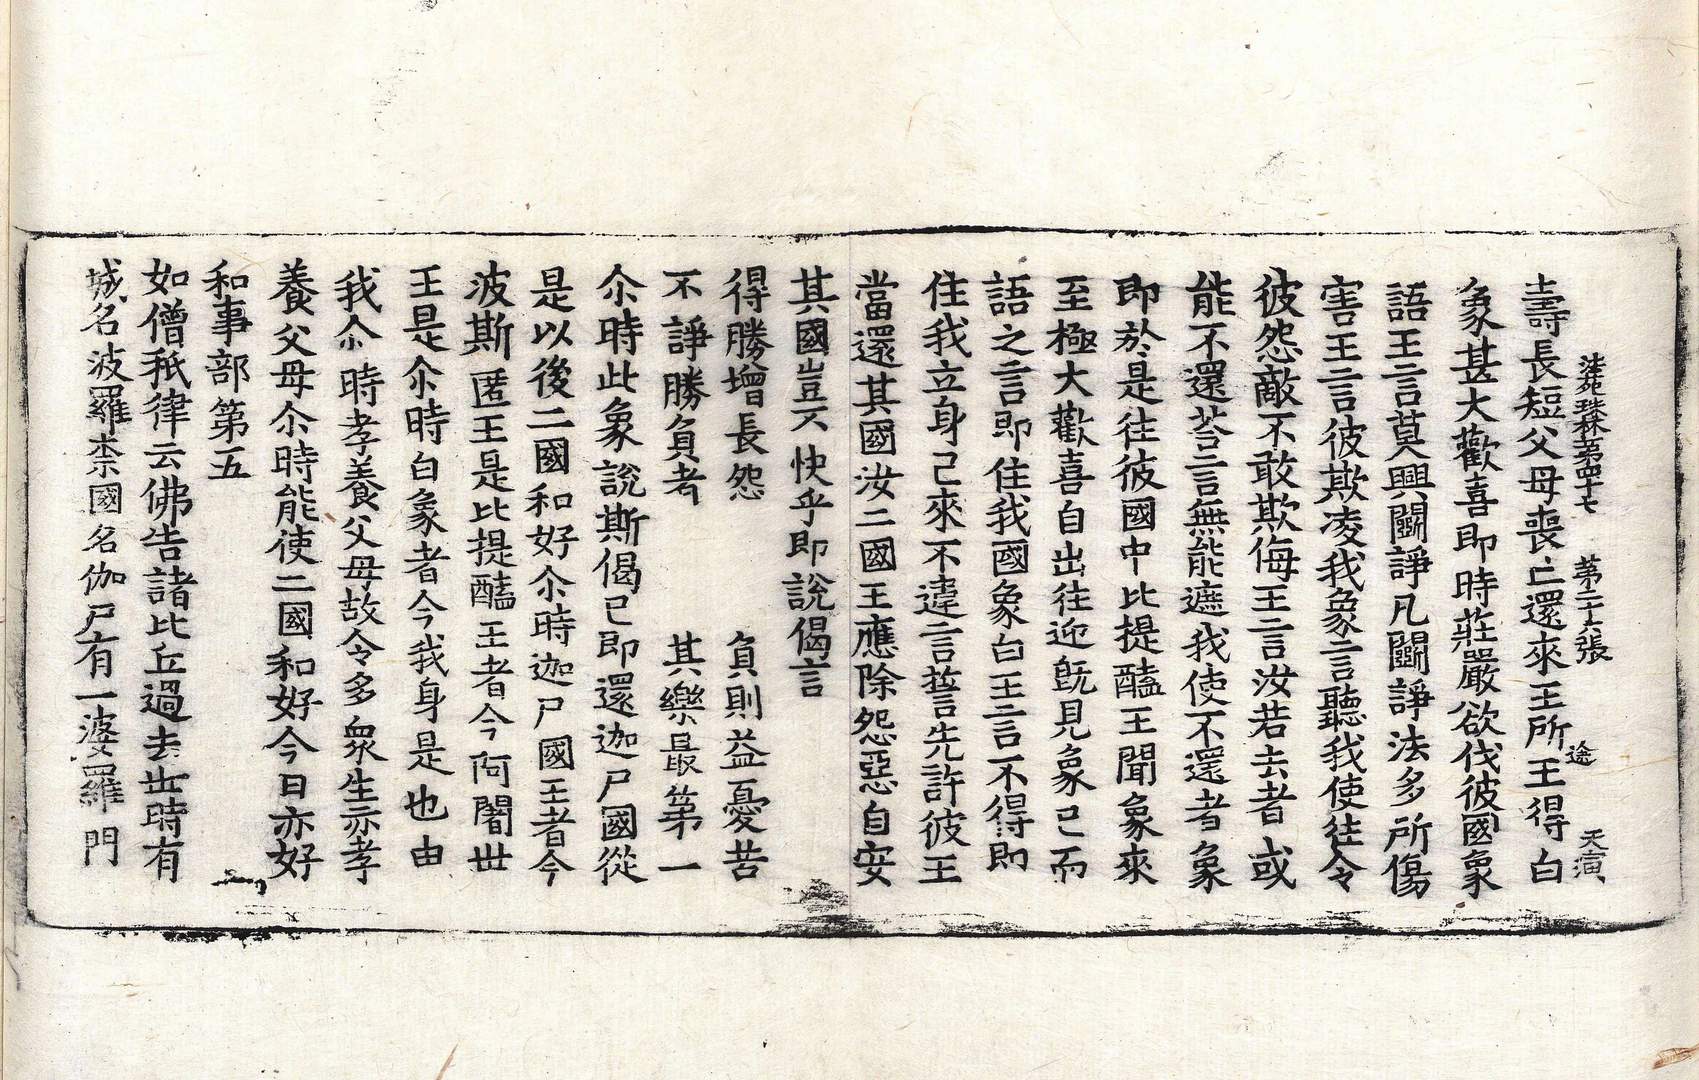 法苑珠林第四十七 第二十六張 途 天演
壽長短父母喪亡還來王所王得白
象甚大歡喜即時莊嚴欲伐彼國象
語王言莫興鬪諍凡鬪諍法多所傷
害王言彼欺凌我象言聽我使往令
彼怨敵不敢欺侮王言汝若去者或
能不還荅言無能遮我使不還者象
即於是往彼國中比提醯王聞象來
至極大歡喜自出往迎旣見象已而
語之言即住我國象白王言不得即
住我立身已來不違言誓先許彼王
當還其國汝二國王應除怨惡自安
其國豈不快乎即說偈言
得勝增長怨 負則益憂苦
不諍勝負者 其樂最第一
尒時此象說斯偈已即還迦尸國從
是以後二國和好尒時迦尸國王者今
波斯匿王是比提醯王者今阿闍世
王是尒時白象者今我身是也由
我尒時孝養父母故令多衆生亦孝
養父母尒時能使二國和好今日亦好
和事部第五
如僧秖律云佛告諸比丘過去世時有
城名波羅柰國名伽尸有一婆羅門